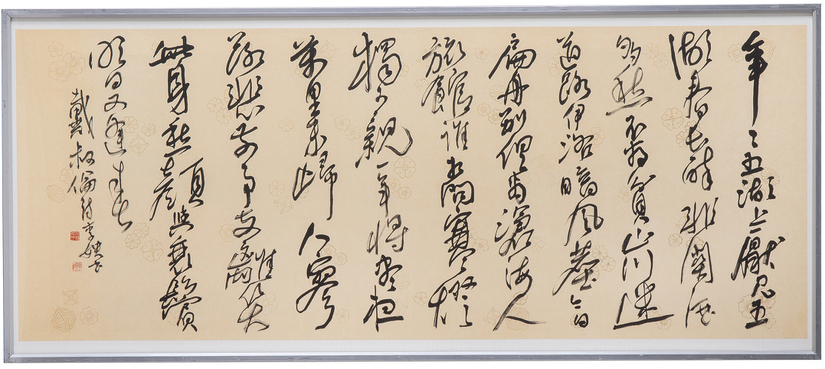 年々五湖上厭見五
湖春長醉非關酒
多愁不為貧山川迷
道路伊洛暗風塵今日
扁舟別俱為滄海人
旅館誰相問寒燈
獨可親一年將盡夜
萬里未歸人寥
落悲前事支離笑
此身愁顏與衰鬢
明日又逢春
戴叔倫詩